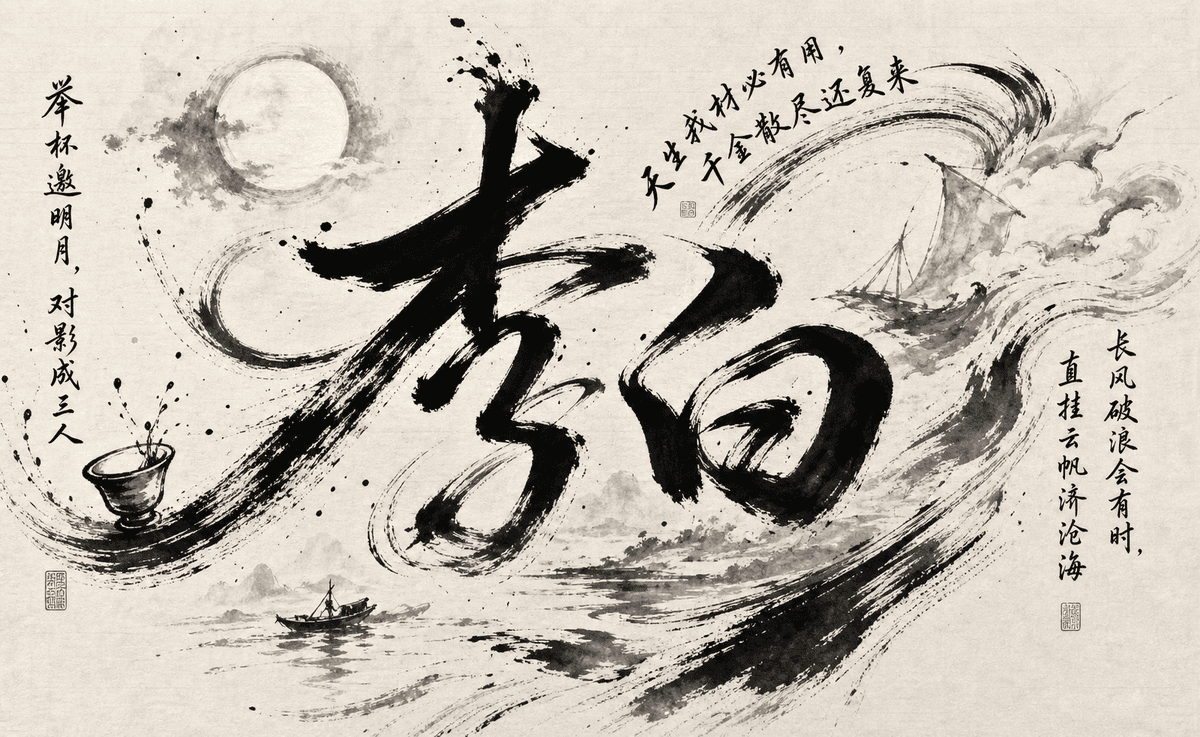 李白
举杯邀明月，对影成三人
天生我材必有用，
千金散尽还复来
长风破浪会有时，
直挂云帆济沧海